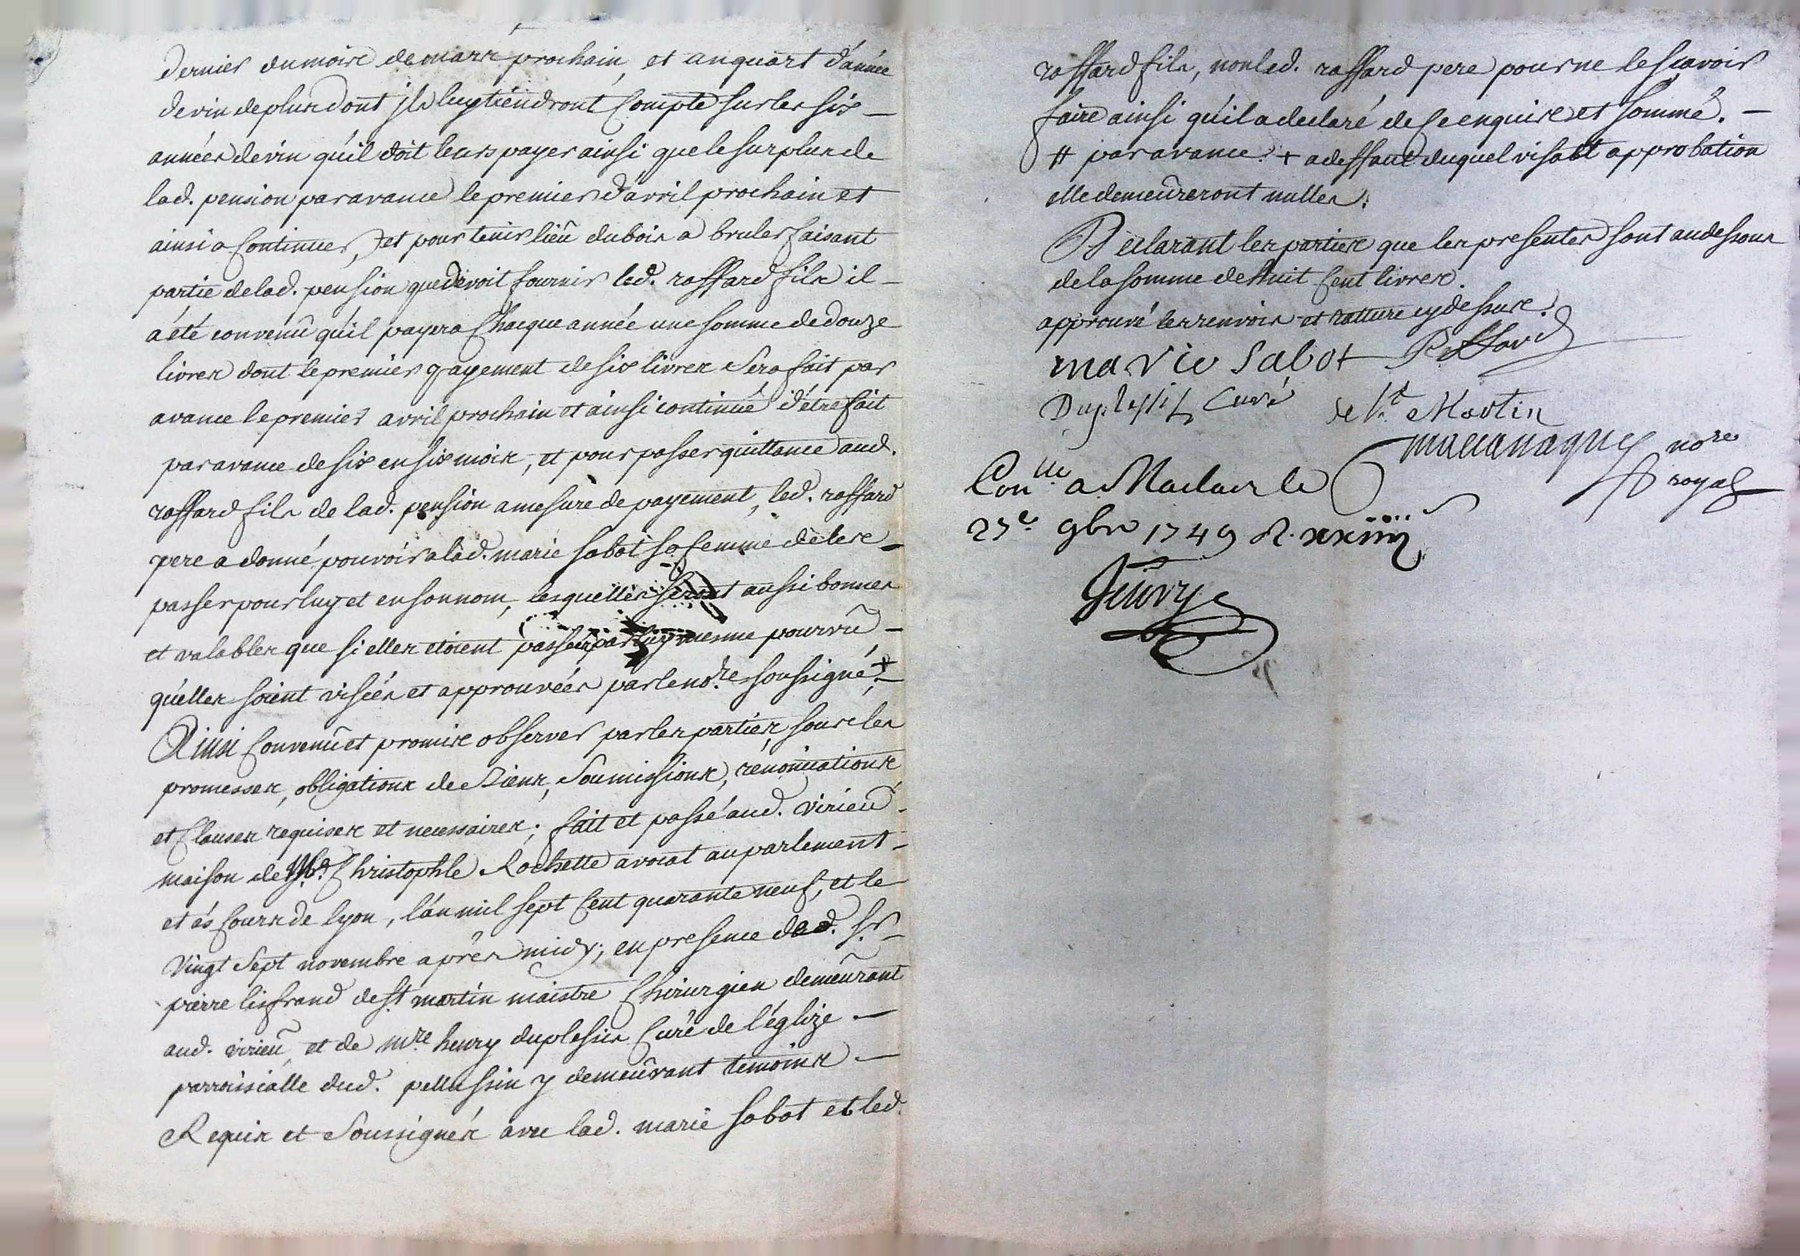 dernier du moire de mars prochain, et un quart d'année
de vin de plus dont ils luy tiendront compte sur les six
années de vin qu'il doit leurs payer ainsi que le surplus de
lad. pension par avance le premier d'avril prochain et
ainsi a continuer, et pour tenir lieu du bois a bruler faisant
partie de lad. pension que devoit fournir led. raffard fils il
a été convenû qu'il payera chacque année une somme de douze
livres dont le premier payement de six livres sera fait par
avance le premier avril prochain et ainsi continué d'être fait
par avance de six en six mois, et pour passer quittance aud.
raffard fils de lad. pension a mesure de payement, led. raffard
pere a donné pouvoir a lad. marie sabot sa femme de les
passer pour luy et en son nom, lesquelles seront aussi bonnes
et valables que si elles etoient passées par luy mesme pourvû
qu'elles soient visées et approuvées par le no.re soussigné +
Ainsi convenû et promis observer par les parties sous les
promesses, obligations de biens, soumissions, renonciations
et clauses requises et necessaires; fait et passé aud. virieû
maison de Me. Christophle Rochette avocat au parlement
et és cours de lyon, l'an mil sept cent quarante neuf, et le
vingt sept novembre après midy; en presence dud. sr.
pierre lisfrand de st. martin maistre chirurgien demeûrant
aud. virieû, et de mre. henry duplessis curé de l'églize
parroissialle dud. pellussin y demeûrant temoins
Requis et soussignés avec lad. marie sabot et led.
raffard fils, non led. raffard pere pour ne le sçavoir
faire ainsi qu'il a declaré de ce enquis et sommé.
# par avance. + a deffaut duquel visa et approbation
elle demeûreront nulles.
Declarant les parties que les presentes sont audessous
de la somme de huit cent livres.
approuvé les renvois et rature cy dessus.
marie sabot Raffard
Duplessis curé de St Martin
nore
royal
Conlle a Maclas le
27e 9bre 1749 R. xxiiii